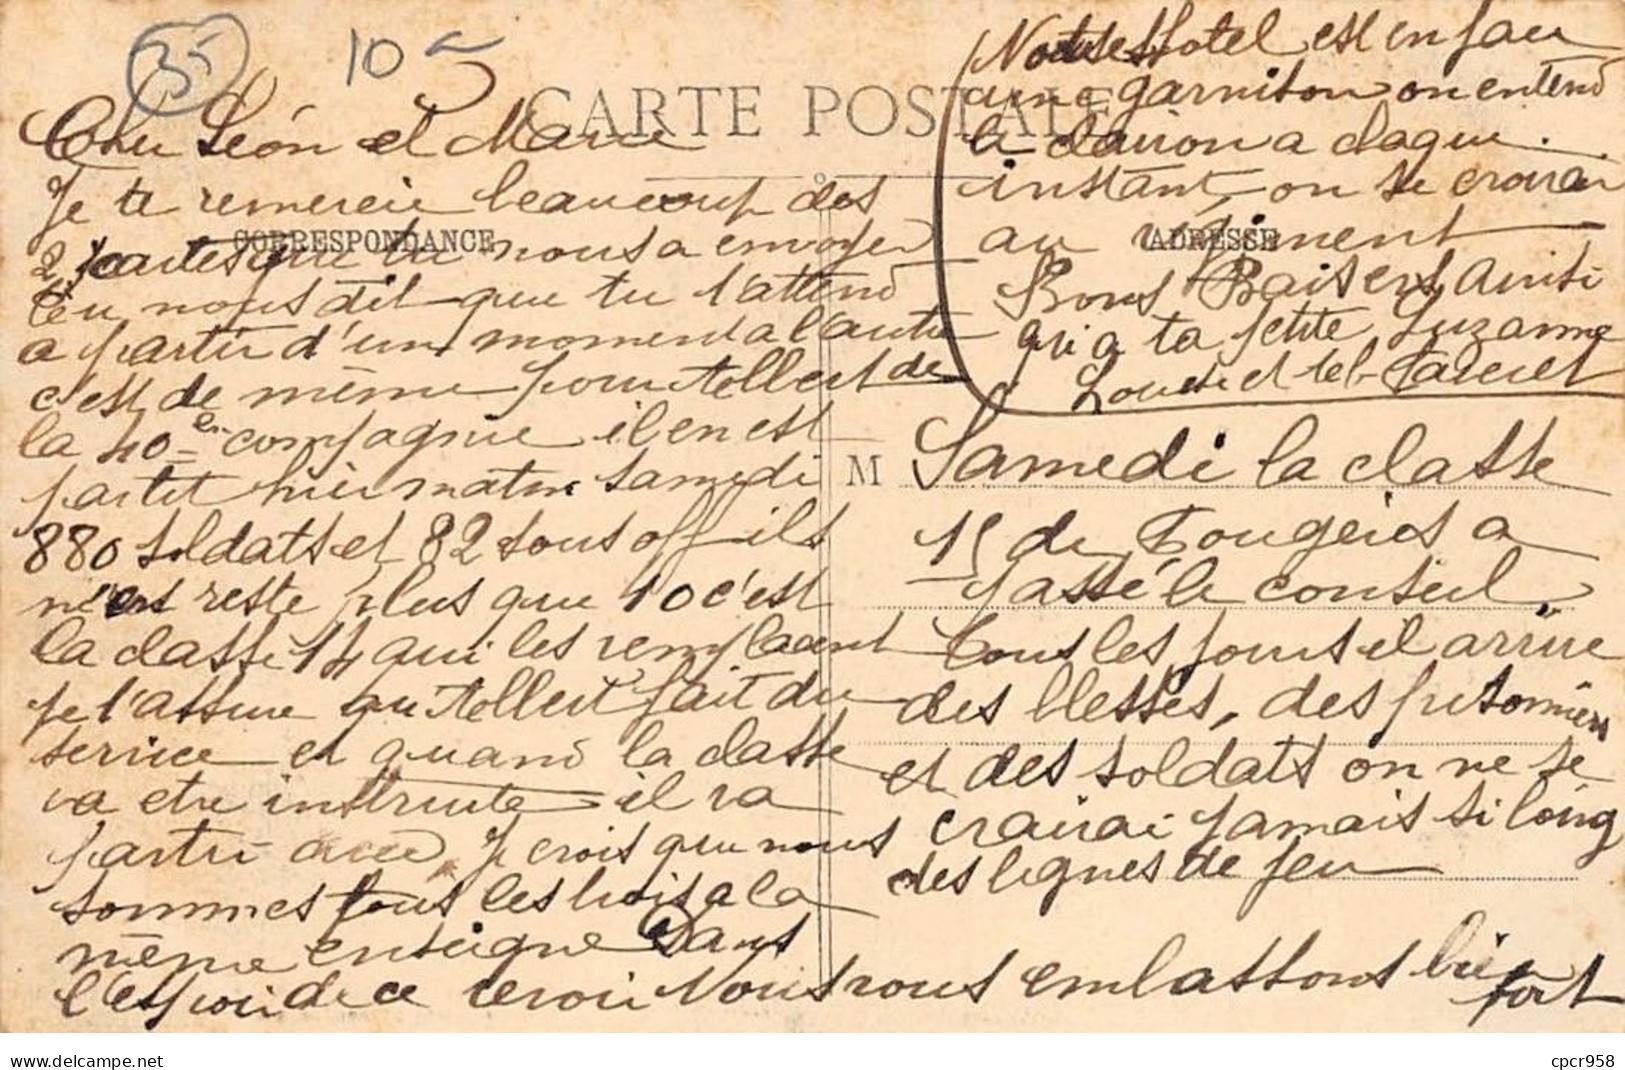 35
10
CARTE POSTALE
CORRESPONDANCE
ADRESSE
M
Cher Léon et Marie
Je te remercie beaucoup des
2 cartes que tu nous a envoyer
tu nous dit que tu l'attend
a partir d'un moment a l'autre
c'est de même pour Albert de
la 40 compagnie il en est
partit hier matin samedi
880 soldats et 82 sous off ils
n'en reste plus que 10 c'est
la classe 14 qui les remplacent
je t'assure qu'Albert fait du
service et quand la classe
va etre instruite il va
partir avec. Je crois que nous
sommes tous les trois a la
même enseigne Dans
l'espoir de ce revoir Nous vous embrassons bien
fort
Samedi la classe
15 de Fougeres a
passé le conseil.
Tous les jours il arrive
des blessés, des prisonniers
et des soldats on ne se
crairai jamais si loing
des lignes de feu
Notre Hotel est en face
une garnison on entend
le clairon a claque
instant, on se croirai
au régiment
Bons Baisers ainsi
qu'a ta petite Suzanne
Louise et Albert